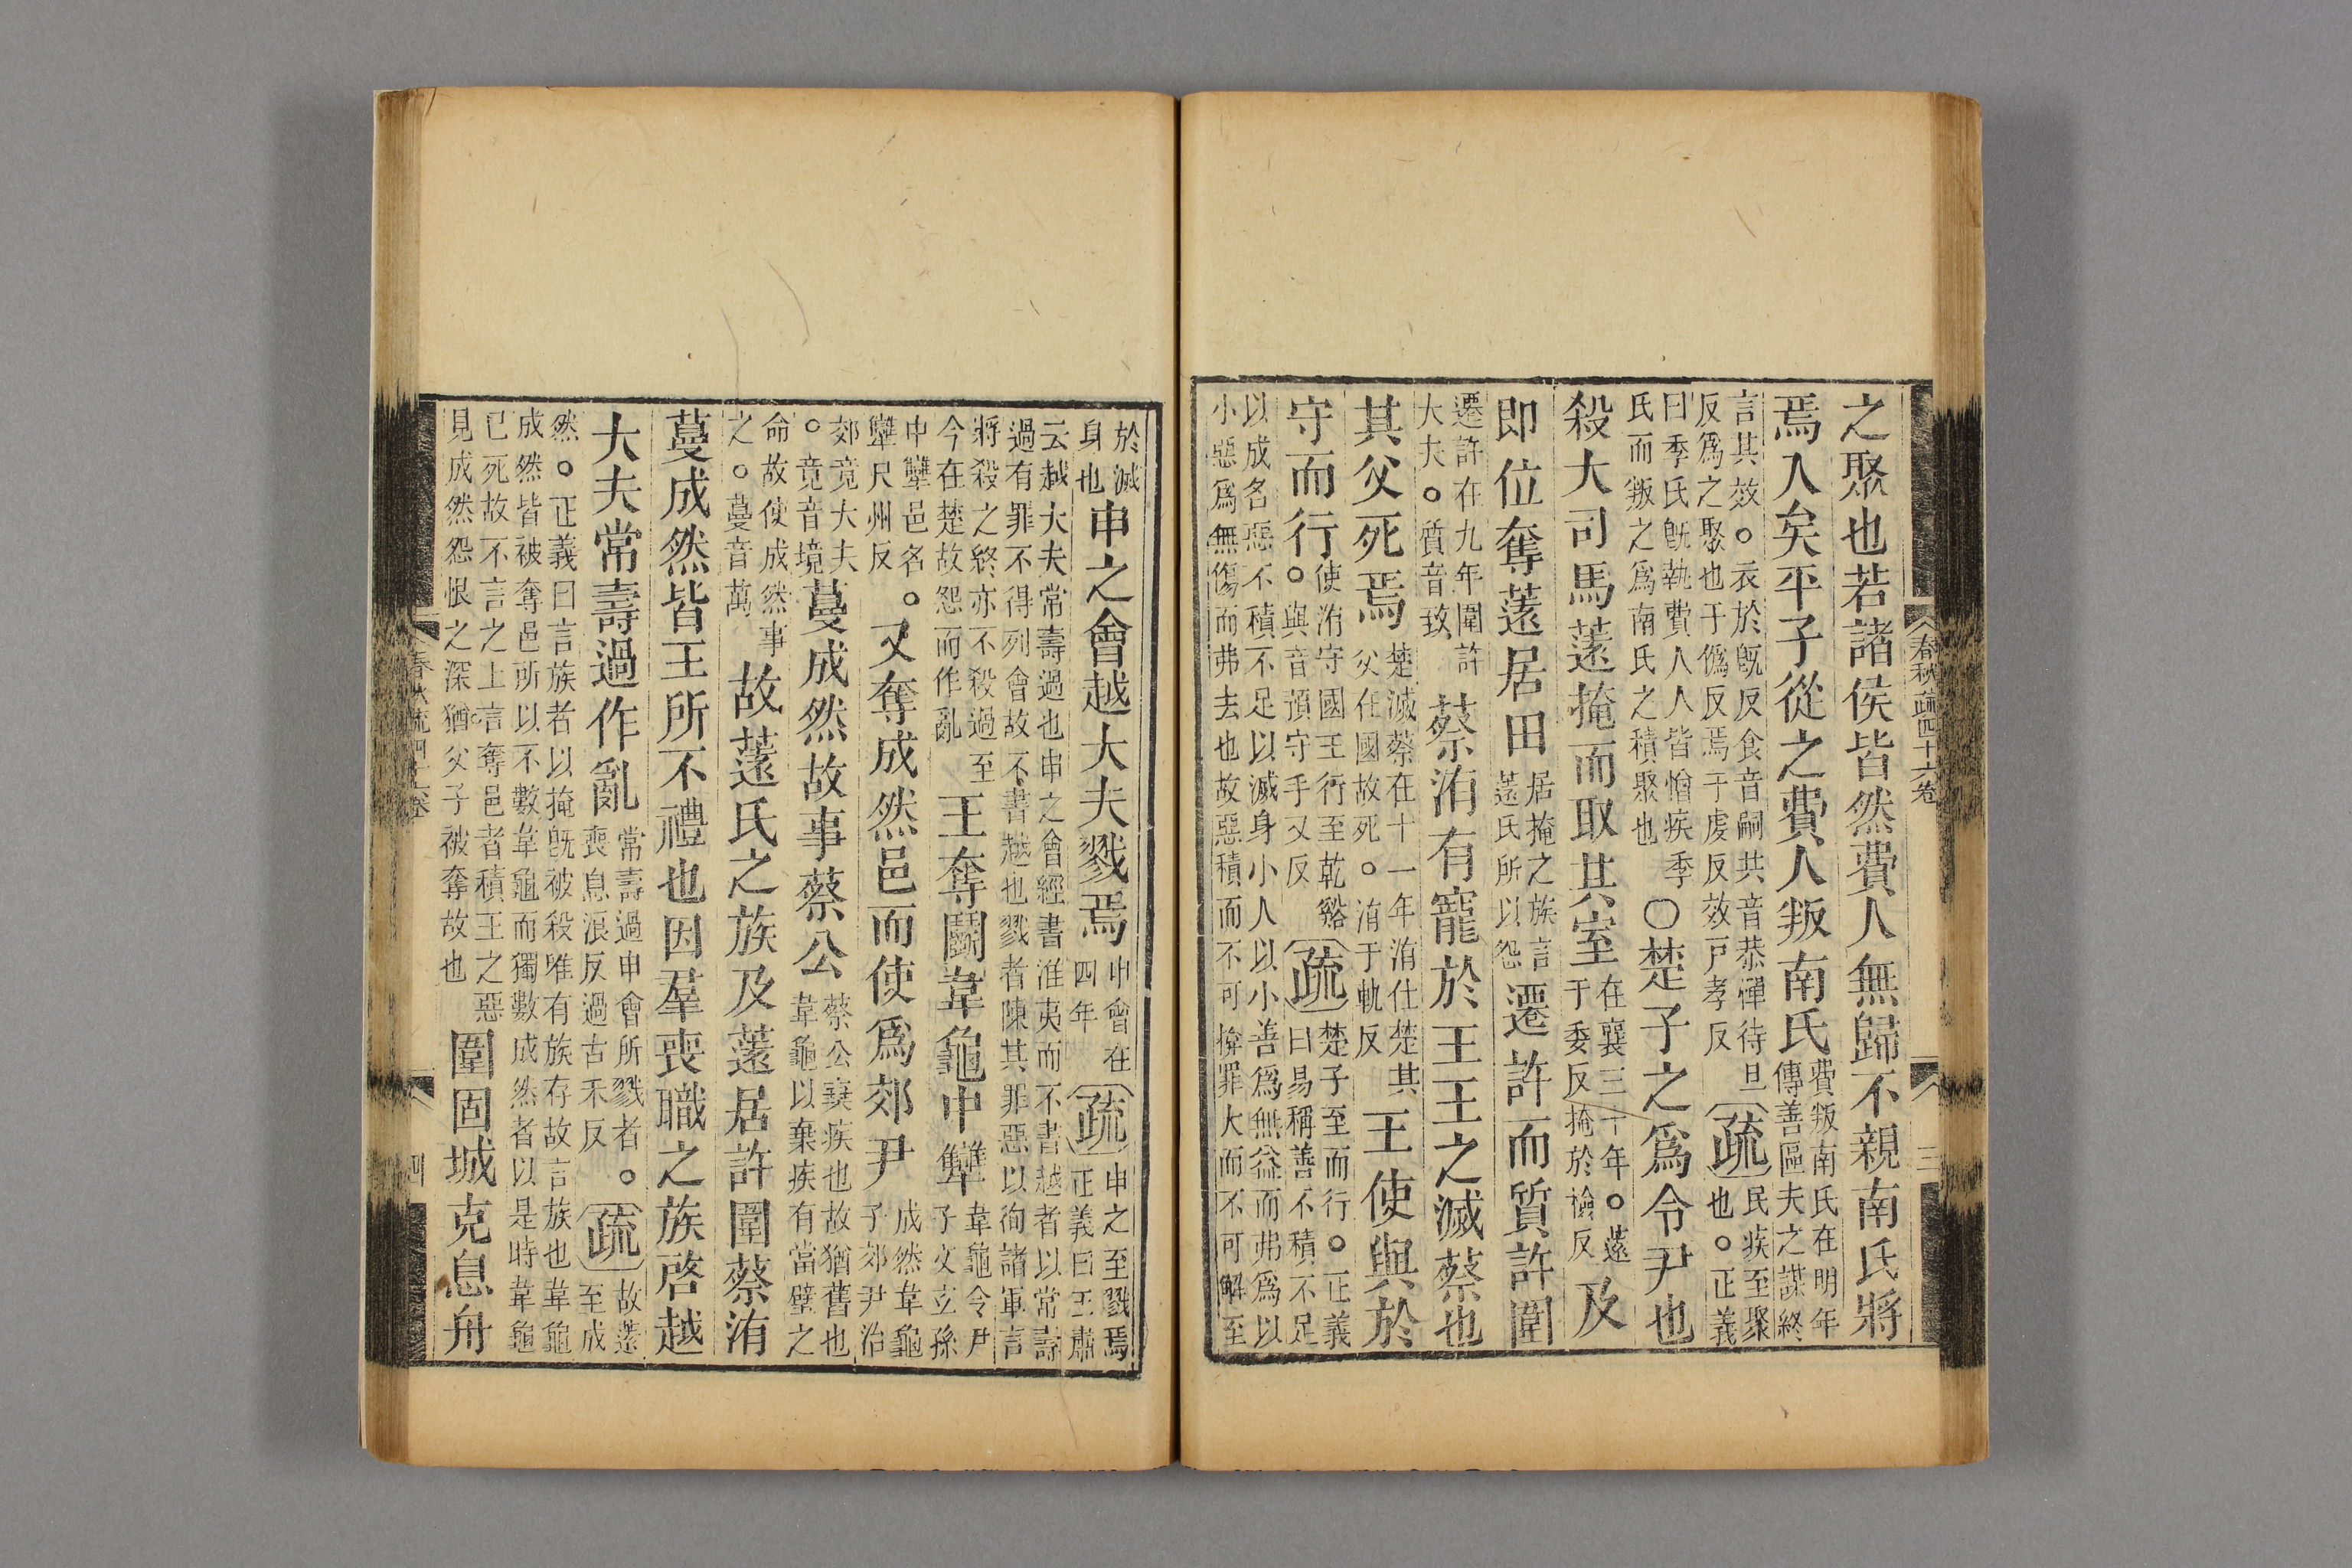 春秋疏四十六卷 三
之聚也若諸侯皆然費人無歸不親南氏將
焉入矣平子從之費人叛南氏
費叛南氏在明年
傳善區夫之謀終
言其效。衣於旣反食音嗣共音恭憚待旦
反爲之聚也于僞反焉于虔反效戸孝反
疏
民疾至聚
也。正義
曰季氏旣執費人人皆憎疾季
氏而叛之爲南氏之積聚也
〇楚子之爲令尹也
殺大司馬薳掩而取其室
在襄三十年。薳
于委反掩於檢反
及
即位奪薳居田
居掩之族言
薳氏所以怨
遷許而質許圍
遷許在九年圍許
大夫。質音致
蔡洧有寵於王王之滅蔡也
其父死焉
楚滅蔡在十一年洧仕楚其
父在國故死。洧于軌反
王使與於
守而行。
使洧守國王行至乾谿
與音預守手又反
疏
楚子至而行。正義
曰易稱善不積不足
以成名惡不積不足以滅身小人以小善爲無益而弗爲以
小惡爲無傷而弗去也故惡積而不可揜罪大而不可解至
於滅
身也
申之會越大夫戮焉
申會在
四年
疏
申之至戮焉
正義曰王肅
云越大夫常壽過也申之會經書淮夷而不書越者以常壽
過有罪不得列會故不書越也戮者陳其罪惡以徇諸軍言
將殺之終亦不殺過至
今在楚故怨而作亂
王奪鬭韋龜中犫
韋龜令尹
子文玄孫
中犫邑名。
犫尺州反
又奪成然邑而使爲郊尹
成然韋龜
子郊尹治
郊竟大夫
。竟音境
蔓成然故事蔡公
蔡公棄疾也故猶舊也
韋龜以棄疾有當璧之
命故使成然事
之。蔓音萬
故薳氏之族及薳居許圍蔡洧
蔓成然皆王所不禮也因羣喪職之族啓越
大夫常壽過作亂
常壽過申會所戮者。
喪息浪反過古禾反
疏
故薳
至成
然。正義曰言族者以掩旣被殺唯有族存故言族也韋龜
成然皆被奪邑所以不數韋龜而獨數成然者以是時韋龜
已死故不言之上言奪邑者積王之惡
見成然怨恨之深猶父子被奪故也
圍固城克息舟
四